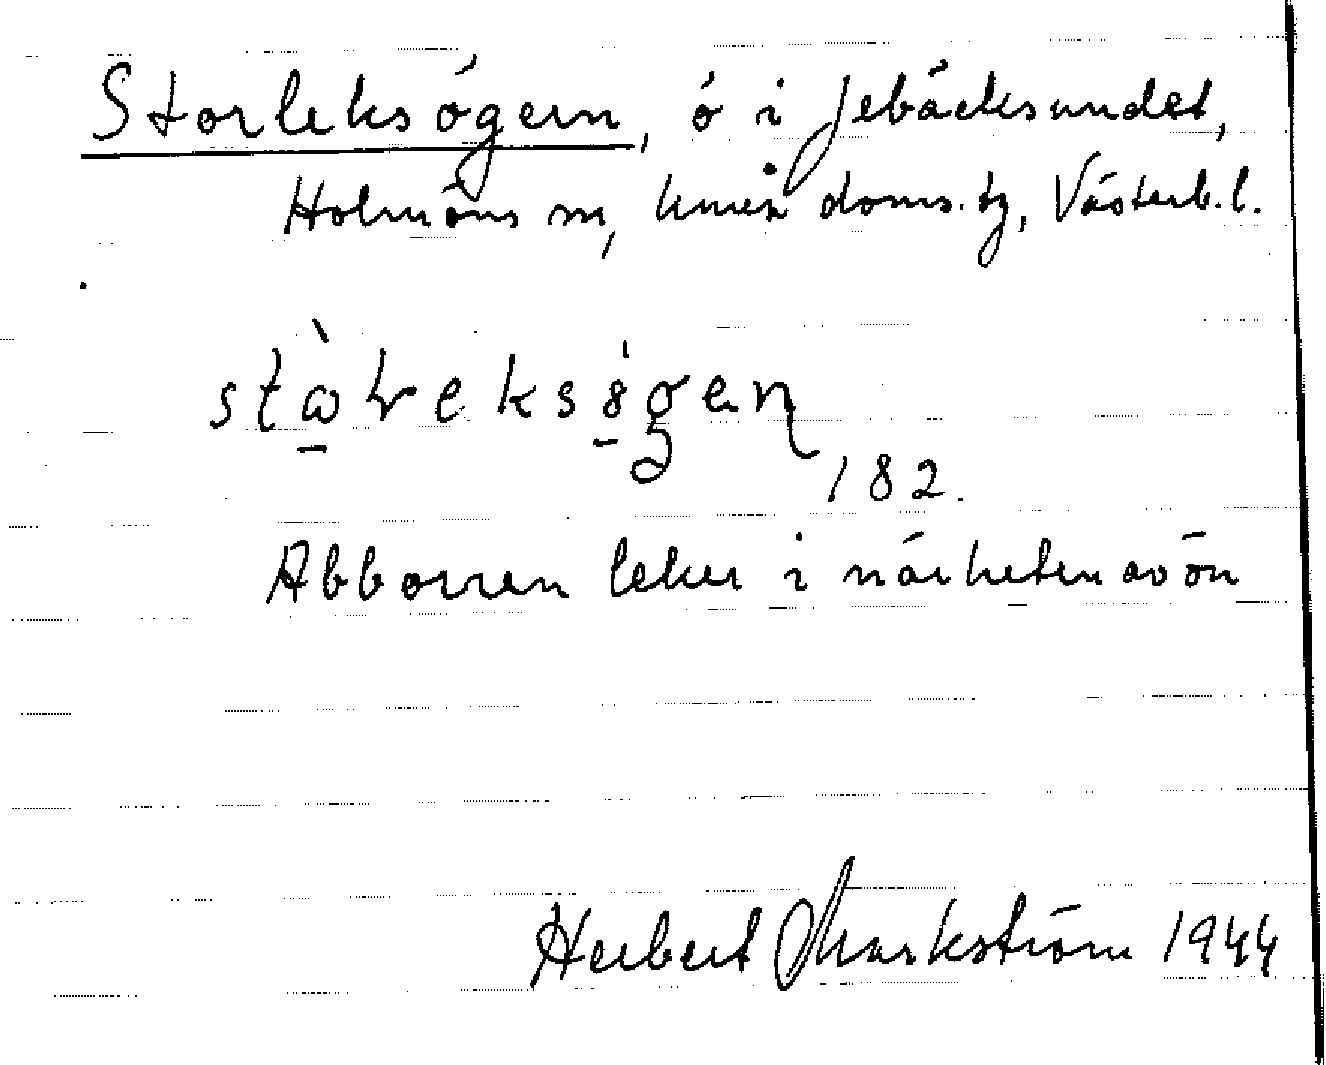 Storleksögern, ö i Jebäcksundet,
Holmöns sn, Umeå doms. tg, Västerb. l.
182.
Abborren leker i närheten av ön
Herbert Markström 1944